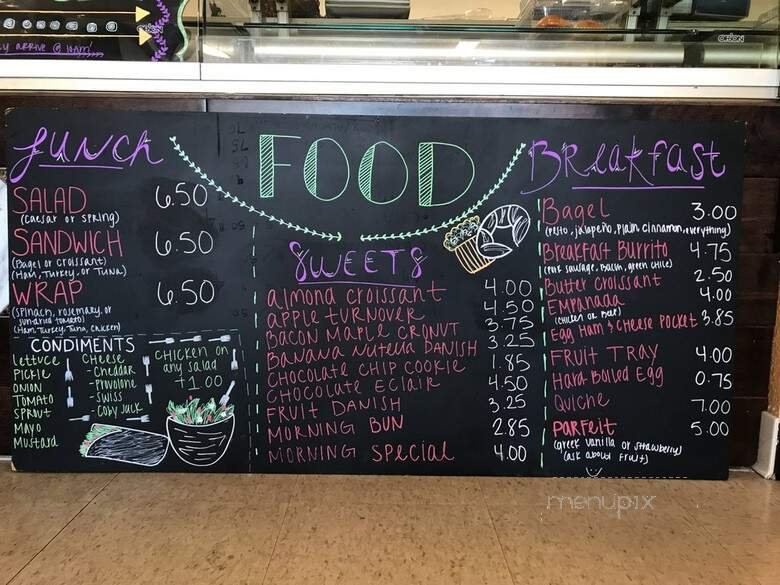 ORION
ORION
y arrive @ 10am!
FOOD
Lunch
SALAD 6.50
(caesar or spring)
SANDWICH 6.50
(Bagel or croissant)
(Ham, Turkey, or Tuna)
WRAP 6.50
(spinach, rosemary, or
sun-dried tomato)
(Ham, Turkey, Tuna, Chicken)
CONDIMENTS
Lettuce
Pickle
Onion
Tomato
Sprout
Mayo
Mustard
Cheese
- Cheddar
- Provolone
- Swiss
- Coby Jack
Chicken on
any salad
+1.00
SWEETS
almond croissant 4.00
apple turnover 4.50
Bacon Maple Cronut 3.75
Banana Nutella Danish 3.25
Chocolate Chip Cookie 1.85
Chocolate Eclair 4.50
Fruit Danish 3.25
Morning Bun 2.85
Morning Special 4.00
Breakfast
Bagel 3.00
(Pesto, jalapeño, Plain, cinnamon, everything)
Breakfast Burrito 4.75
sausage, Bacon, green chile)
Butter Croissant 2.50
Empanada 4.00
(chicken or beef)
Egg Ham & Cheese Pocket 3.85
Fruit Tray 4.00
Hard Boiled Egg 0.75
Quiche 7.00
Parfeit 5.00
(greek vanilla or strawberry)
(ask about fruit)
menupix